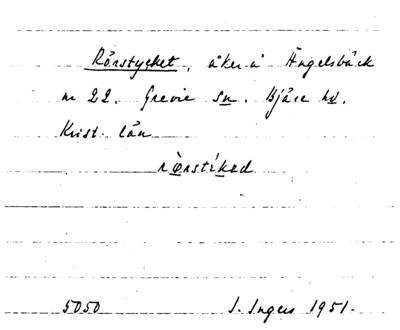 Rörstycket, åker å Ängelsbäck
nr 22. Grevie sn. Bjäre hd.
Krist. län
rö̀rstíkəd
5050 I. Ingers 1951.